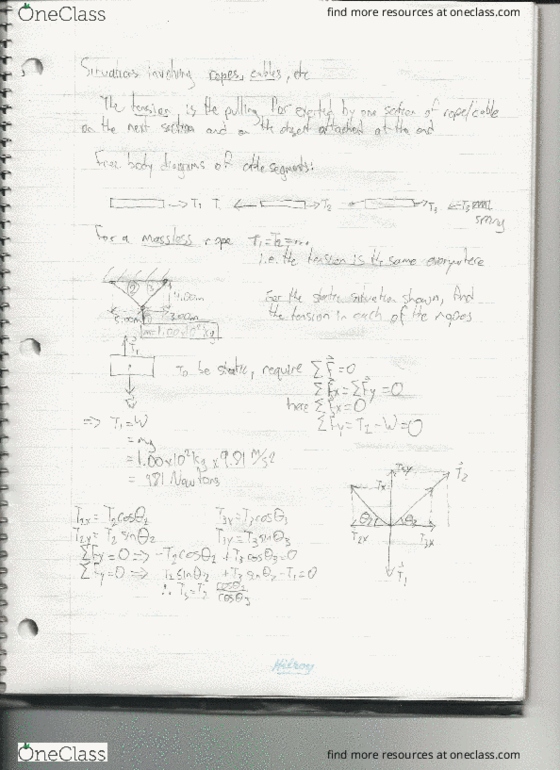 OneClass
find more resources at oneclass.com
Situations involving ropes, cables, etc
The tension is the pulling for exerted by one section of rope/cable
on the next section and on the object attached at the end
Free body diagrams of cable segments:
T₁ T₂ T₃
For a massless rope T₁=T₂=
i.e. the tension is the same everywhere
4.00m
3.00m
m=1.00x10²kg
For the static situation shown, find
the tension in each of the ropes
T₁
To be static, require ΣF=0
ΣFx=ΣFy=0
here ΣFx=0
ΣFy=T₂-W=0
=> T₁=W
=mg
=1.00x10²kg x 9.81 m/s²
=981 Newtons
T₂y
T₂
θ₂ θ₃
T₂x T₃x
T₁
T₂x=T₂cosθ₂ T₃x=T₃cosθ₃
T₂y=T₂ sinθ₂ T₃y=T₃sinθ₃
ΣFx=0 => -T₂cosθ₂ + T₃cosθ₃=0
ΣFy=0 => T₂sinθ₂ + T₃sinθ₃-T₁=0
∴ T₃=T₂ cosθ₂/cosθ₃
Hilroy
OneClass
find more resources at oneclass.com